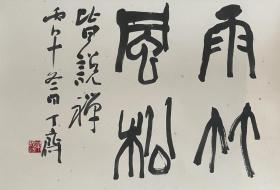 雨竹
風松
皆說禪
丙午冬日丁齋